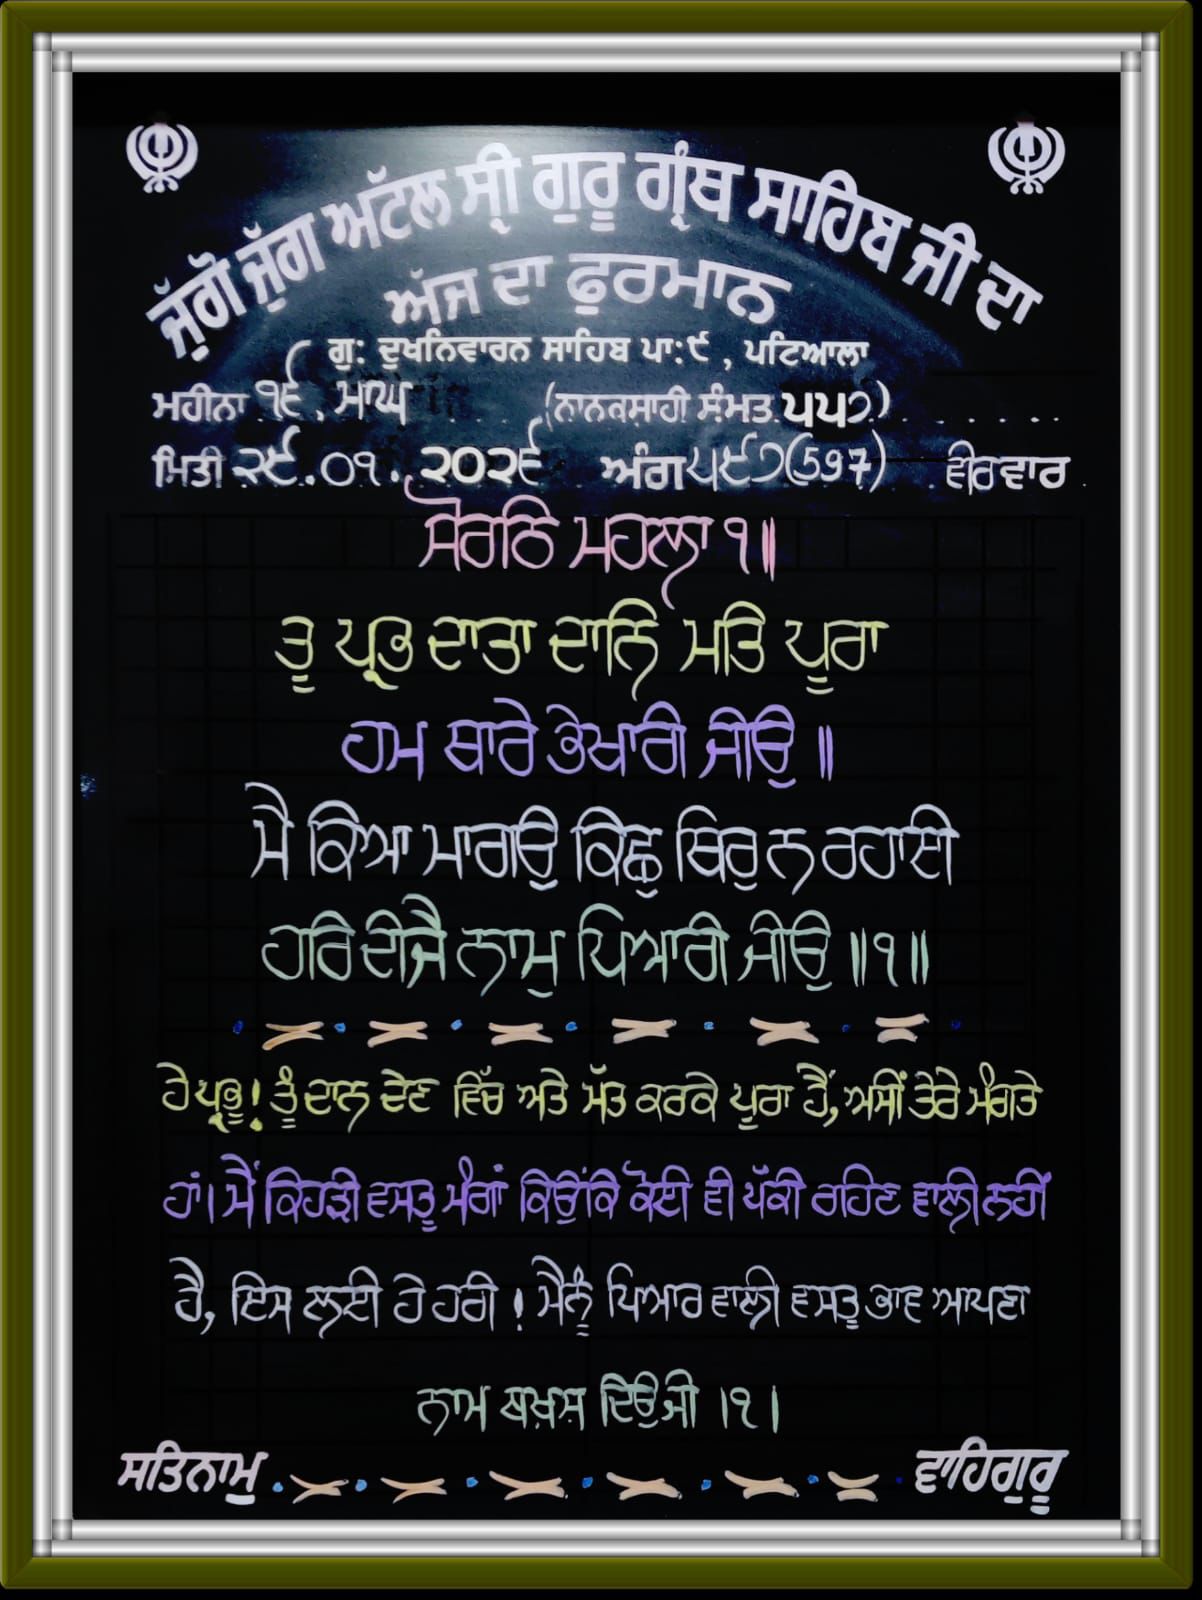 ਜੁੱਗੋ ਜੁੱਗ ਅੱਟਲ ਸ੍ਰੀ ਗੁਰੂ ਗ੍ਰੰਥ ਸਾਹਿਬ ਜੀ ਦਾ
ਅੱਜ ਦਾ ਫੁਰਮਾਨ
ਗੁ: ਦੁਖਨਿਵਾਰਨ ਸਾਹਿਬ ਪਾ:੯, ਪਟਿਆਲਾ
ਮਹੀਨਾ ੧੬, ਮਾਘ (ਨਾਨਕਸ਼ਾਹੀ ਸੰਮਤ ੫੫੭)
ਮਿਤੀ ੨੯.੦੧.੨੦੨੬ ਅੰਗ ੫੯੭(597) ਵੀਰਵਾਰ
ਸੋਰਠਿ ਮਹਲਾ ੧॥
ਤੂ ਪ੍ਰਭ ਦਾਤਾ ਦਾਨਿ ਮਤਿ ਪੂਰਾ
ਹਮ ਥਾਰੇ ਭੇਖਾਰੀ ਜੀਉ ॥
ਮੈ ਕਿਆ ਮਾਗਉ ਕਿਛੁ ਥਿਰੁ ਨ ਰਹਾਈ
ਹਰਿ ਦੀਜੈ ਨਾਮੁ ਪਿਆਰੀ ਜੀਉ ॥੧॥
ਹੇ ਪ੍ਰਭੂ! ਤੂੰ ਦਾਨ ਦੇਣ ਵਿੱਚ ਅਤੇ ਮੱਤ ਕਰਕੇ ਪੂਰਾ ਹੈਂ, ਅਸੀਂ ਤੇਰੇ ਮੰਗਤੇ
ਹਾਂ। ਮੈਂ ਕਿਹੜੀ ਵਸਤੂ ਮੰਗਾਂ ਕਿਉਂਕਿ ਕੋਈ ਵੀ ਪੱਕੀ ਰਹਿਣ ਵਾਲੀ ਨਹੀਂ
ਹੈ, ਇਸ ਲਈ ਹੇ ਹਰੀ! ਮੈਨੂੰ ਪਿਆਰ ਵਾਲੀ ਵਸਤੂ ਭਾਵ ਆਪਣਾ
ਨਾਮ ਬਖਸ਼ ਦਿਉ ਜੀ ।੧।
ਸਤਿਨਾਮੁ ਵਾਹਿਗੁਰੂ